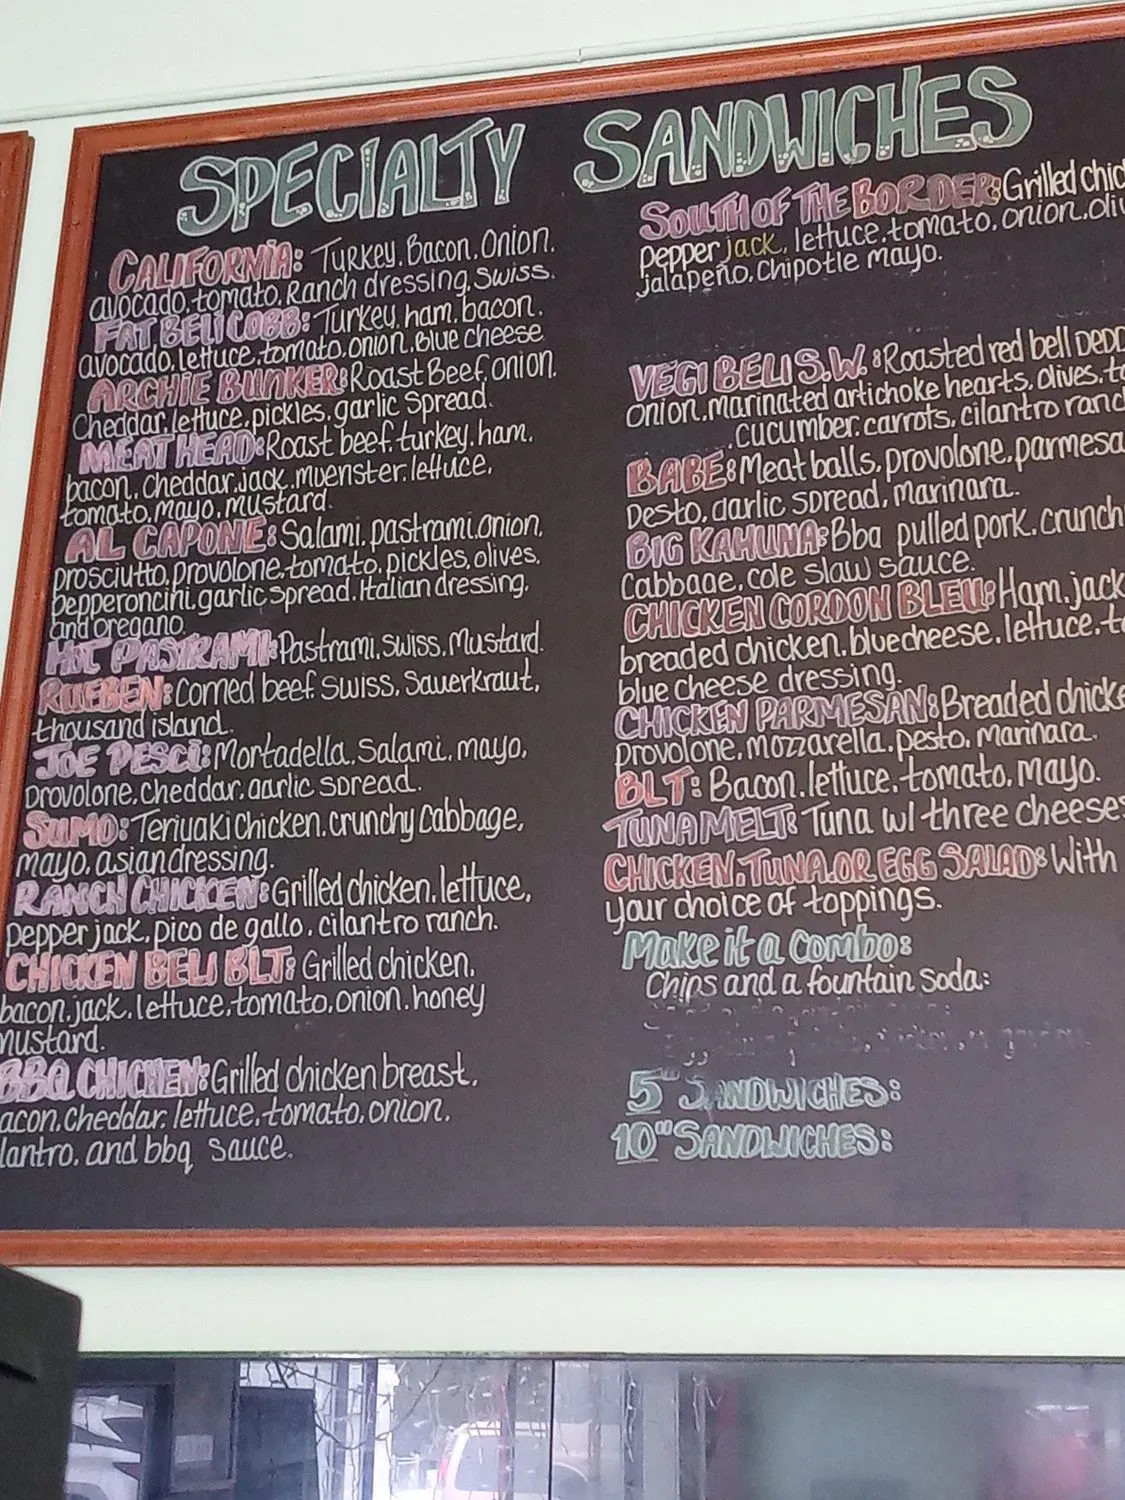 SPECIALTY SANDWICHES
CALIFORNIA: Turkey. Bacon. Onion.
avocado. tomato. Ranch dressing. Swiss.
FAT BELI COBB: Turkey. ham. bacon.
avocado. lettuce. tomato. onion. Blue cheese
ARCHIE BUNKER: Roast Beef. onion.
Cheddar. lettuce. pickles. garlic Spread.
MEAT HEAD: Roast beef. turkey. ham.
bacon. Cheddar. jack. muenster. lettuce.
tomato. mayo. mustard.
AL CAPONE: Salami. pastrami. onion.
prosciutto. provolone. tomato. pickles. olives.
pepperoncini. garlic spread. Italian dressing.
and oregano.
HOT PASTRAMI: Pastrami. Swiss. Mustard.
RUEBEN: Corned beef. Swiss. Sauerkraut.
thousand island.
JOE PESCI: Mortadella. Salami. mayo.
provolone. cheddar. garlic spread.
SUMO: Teriyaki Chicken. crunchy Cabbage.
mayo. asian dressing.
RANCH CHICKEN: Grilled chicken. lettuce.
pepper jack. pico de gallo. cilantro ranch.
CHICKEN BELI BLT: Grilled chicken.
bacon. jack. lettuce. tomato. onion. honey
mustard.
BBQ CHICKEN: Grilled chicken breast.
acon. Cheddar. lettuce. tomato. onion.
lantro. and bbq sauce.
SOUTH OF THE BORDER: Grilled chic
pepper jack. lettuce. tomato. onion. oliv
jalapeño. Chipotle mayo.
VEGI BELI S.W.: Roasted red bell pepp
onion. marinated artichoke hearts. olives. to
cucumber. carrots. cilantro ranc
BABE: Meatballs. provolone. parmesa
pesto. garlic spread. Marinara.
BIG KAHUNA: Bbq pulled pork. crunch
Cabbage. cole slaw sauce.
CHICKEN CORDON BLEU: Ham. jack
breaded chicken. blue cheese. lettuce. to
blue cheese dressing.
CHICKEN PARMESAN: Breaded chicke
provolone. mozzarella. pesto. marinara.
BLT: Bacon. lettuce. tomato. Mayo.
TUNA MELT: Tuna w/ three cheeses
CHICKEN. TUNA. OR EGG SALAD: With
your choice of toppings.
Make it a Combo:
Chips and a fountain soda:
5" SANDWICHES:
10" SANDWICHES: